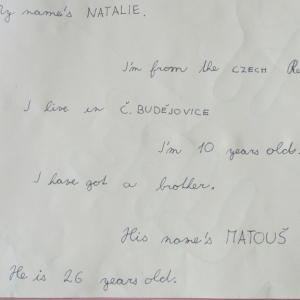 My name's NATALIE.
I'm from the CZECH Re
I live in Č. BUDĚJOVICE
I'm 10 years old.
I have got a brother.
His name's MATOUŠ
He is 26 years old.